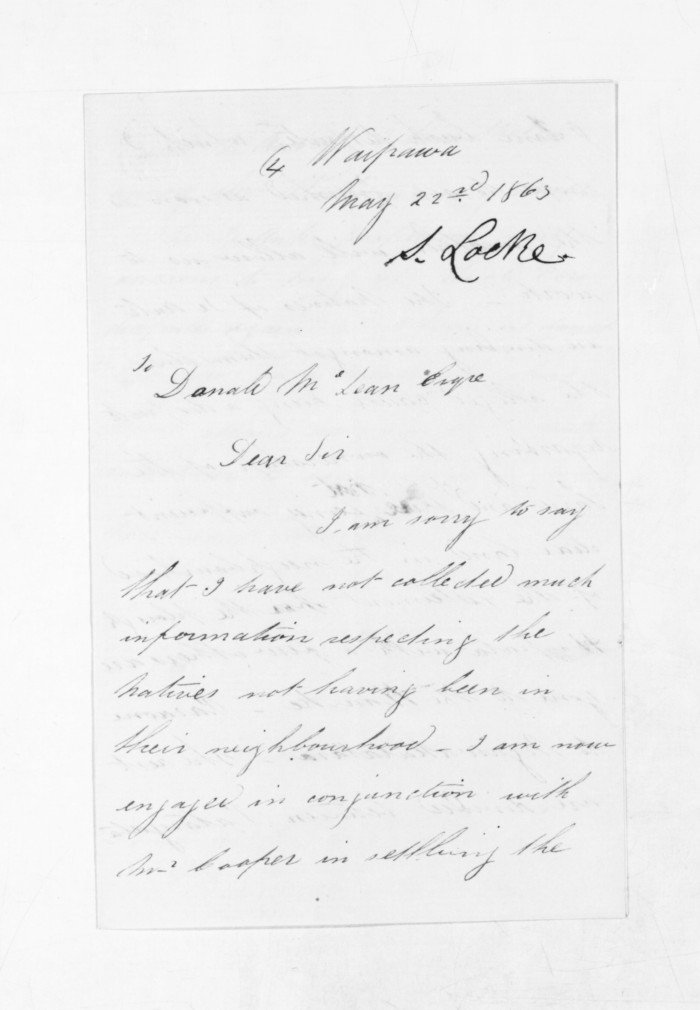 4
Waipawa
May 22nd 1863
S. Locke.
To
Donald McLean Esqre
Dear Sir
I am sorry to say
that I have not collected much
information respecting the
natives not having been in
their neighbourhood - I am now
engaged in conjunction with
Mr Cooper in settling the